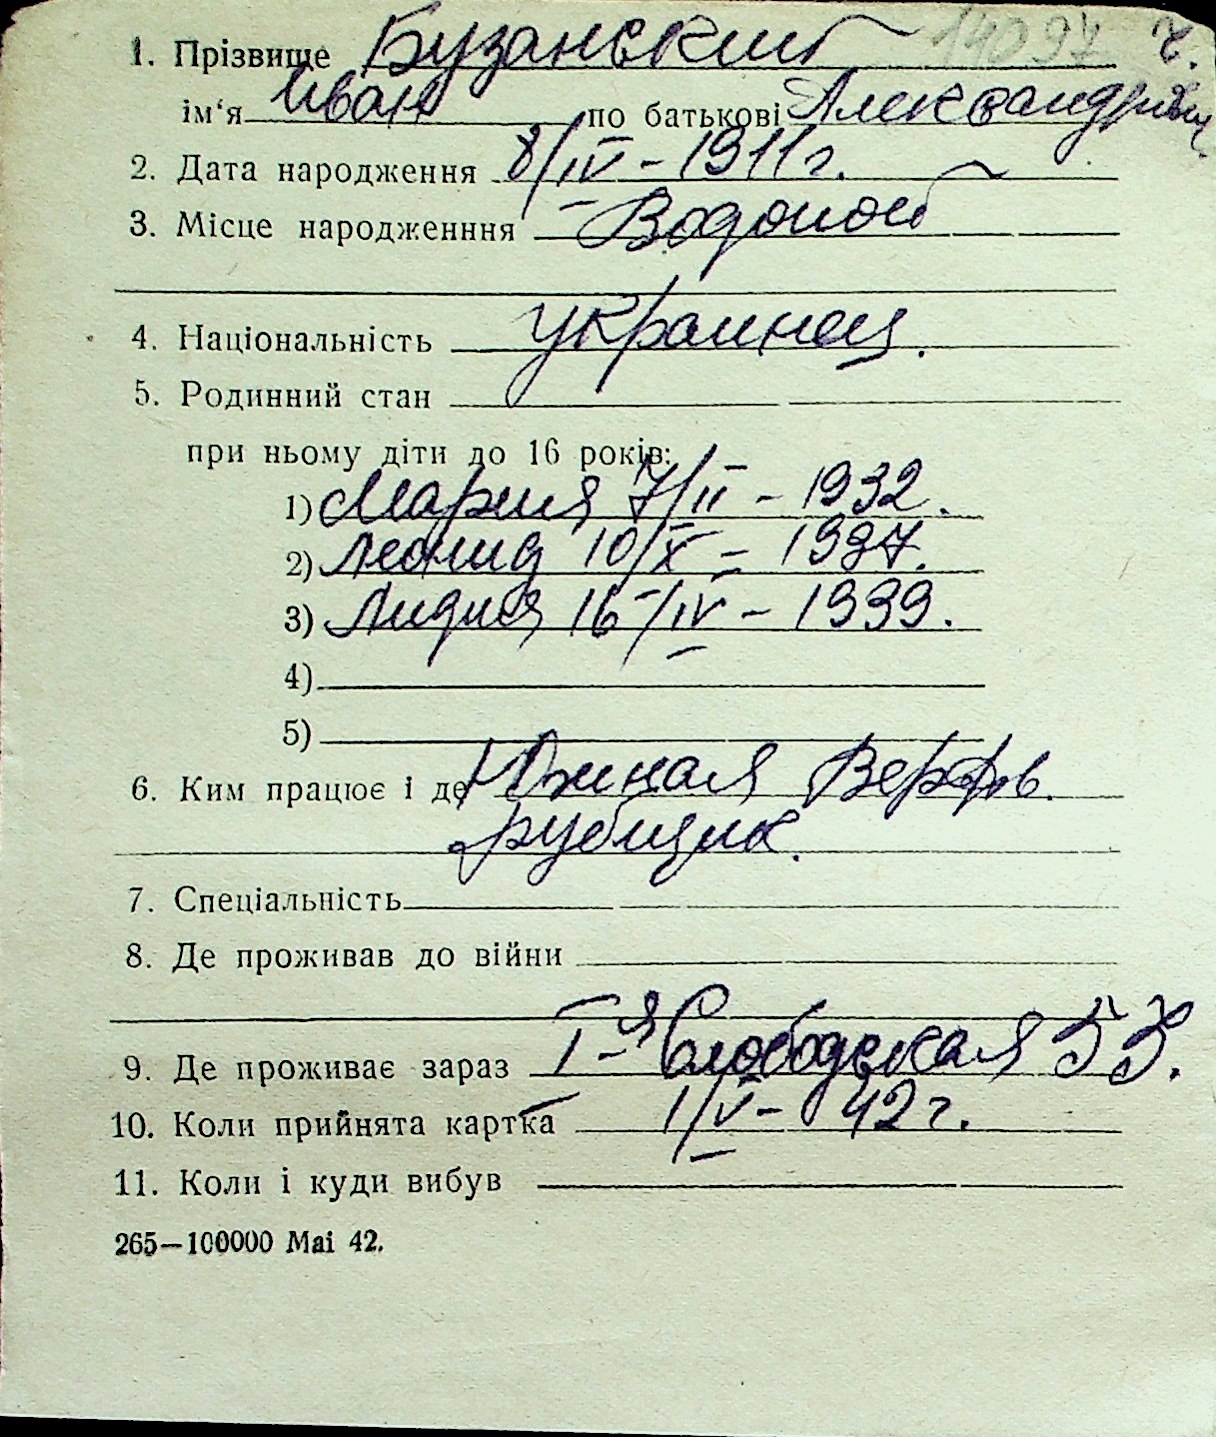 1. Прізвище Бузанский 14097 ч.
ім'я Иван по батькові Александрович
2. Дата народження 8/IV - 1911 г.
3. Місце народженння Водопой
4. Національність украинец.
5. Родинний стан
при ньому діти до 16 років:
1) Мария 7/II - 1932.
2) Леонид 10/X - 1937.
3) Лидия 16/IV - 1939.
4)
5)
6. Ким працює і де Южная Верфь.
рубщик.
7. Спеціальність
8. Де проживав до війни
9. Де проживає зараз I-я Слободская 53.
10. Коли прийнята картка 1/V - 42 г.
11. Коли і куди вибув
265—100000 Mai 42.